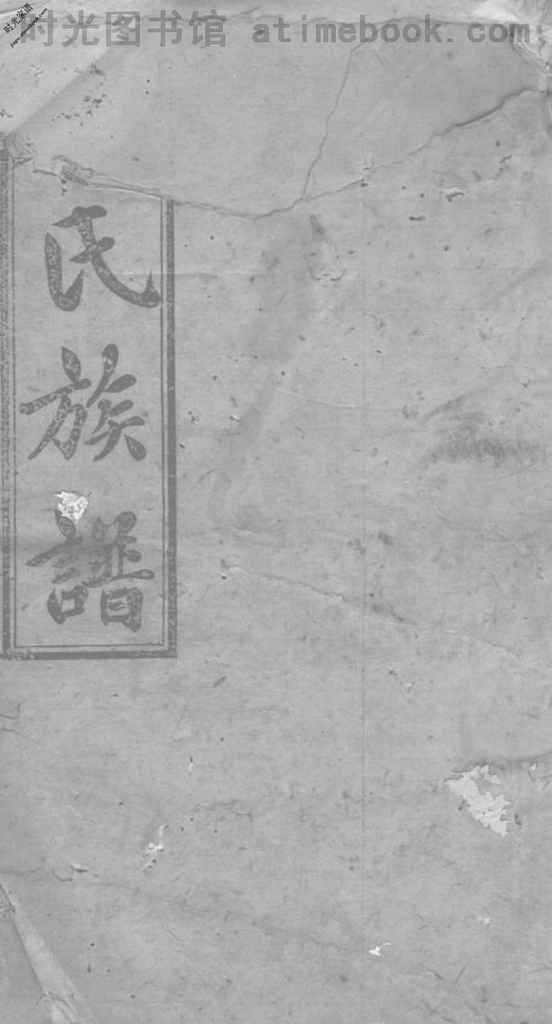 时光图书馆 atimebook.com
氏族譜